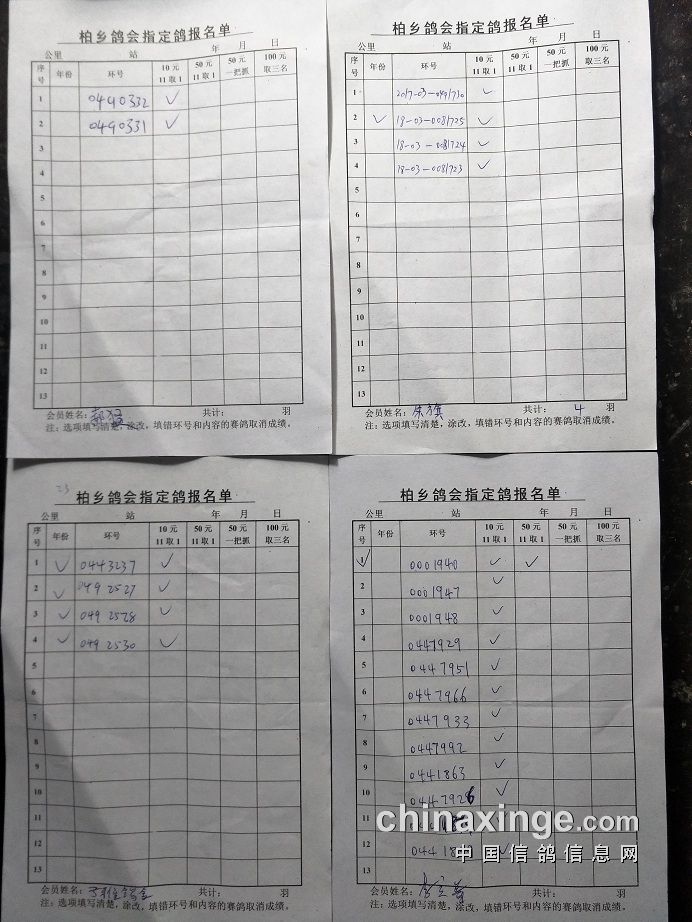 柏乡鸽会指定鸽报名单
公里 站 年 月 日
序号 年份 环号 10元11取1 50元11取1 50元一把抓 100元取三名
1 0490332 ✓
2 0490331 ✓
3
4
5
6
7
8
9
10
11
12
13
会员姓名: 共计: 羽
注:选项填写清楚,涂改,填错环号和内容的赛鸽取消成绩。
柏乡鸽会指定鸽报名单
公里 站 年 月 日
序号 年份 环号 10元11取1 50元11取1 50元一把抓 100元取三名
1 2017-03-0491730 ✓
2 ✓ 18-03-0081725 ✓
3 18-03-0081724 ✓
4 18-03-0081723 ✓
5
6
7
8
9
10
11
12
13
会员姓名: 共计: 4 羽
注:选项填写清楚,涂改,填错环号和内容的赛鸽取消成绩。
23
柏乡鸽会指定鸽报名单
公里 站 年 月 日
序号 年份 环号 10元11取1 50元11取1 50元一把抓 100元取三名
1 ✓ 0443237 ✓
2 ✓ 0492527 ✓
3 ✓ 0492528 ✓
4 ✓ 0492530 ✓
5
6
7
8
9
10
11
12
13
会员姓名: 共计: 羽
注:选项填写清楚,涂改,填错环号和内容的赛鸽取消成绩。
柏乡鸽会指定鸽报名单
公里 站 年 月 日
序号 年份 环号 10元11取1 50元11取1 50元一把抓 100元取三名
1 ✓ 0001940 ✓ ✓
2 0001947 ✓
3 0001948 ✓
4 0447929 ✓
5 0447951 ✓
6 0447966 ✓
7 0447933 ✓
8 0447992 ✓
9 0441863 ✓
10 0447926 ✓
11
12 ✓
13
会员姓名: 共计: 羽
注:选项填写清楚,涂改,填错环号和内容的赛鸽取消成绩。
chinaxinge.com
中国信鸽信息网